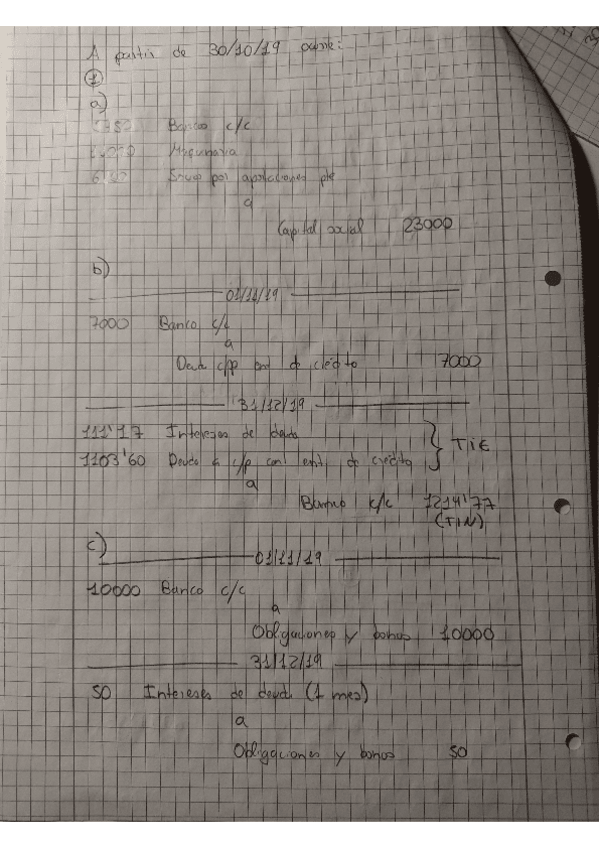 A partir de 30/10/19 ocurre:
1
a)
Bancos c/c
Maquinaria
Socios por aportaciones pte
a
Capital social 23000
b)
01/11/19
7000 Banco c/c
a
Deuda c/p ent de crédito 7000
31/12/19
111'17 Intereses de deuda
1103'60 Deuda a c/p con enti. de crédito } TIE
a
Banco c/c 1214'77
(TIN)
c)
01/11/19
10000 Banco c/c
a
Obligaciones y bonos 10000
31/12/19
50 Intereses de deuda (1 mes)
a
Obligaciones y bonos 50